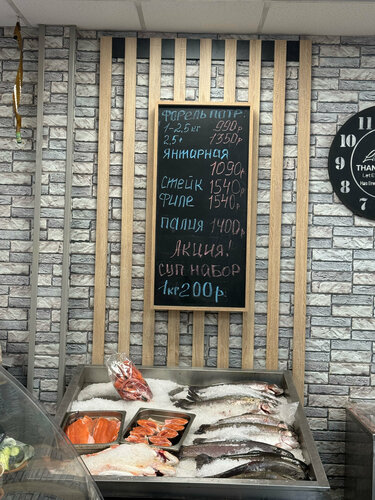 форель потр.
1-2,5 кг 990р.
2,5+ 1350р.
янтарная
1090р.
стейк 1540р.
филе 1540р.
палия 1400р.
Акция!
суп набор
1кг 200р.
11 12
10
9
8
7
THAN